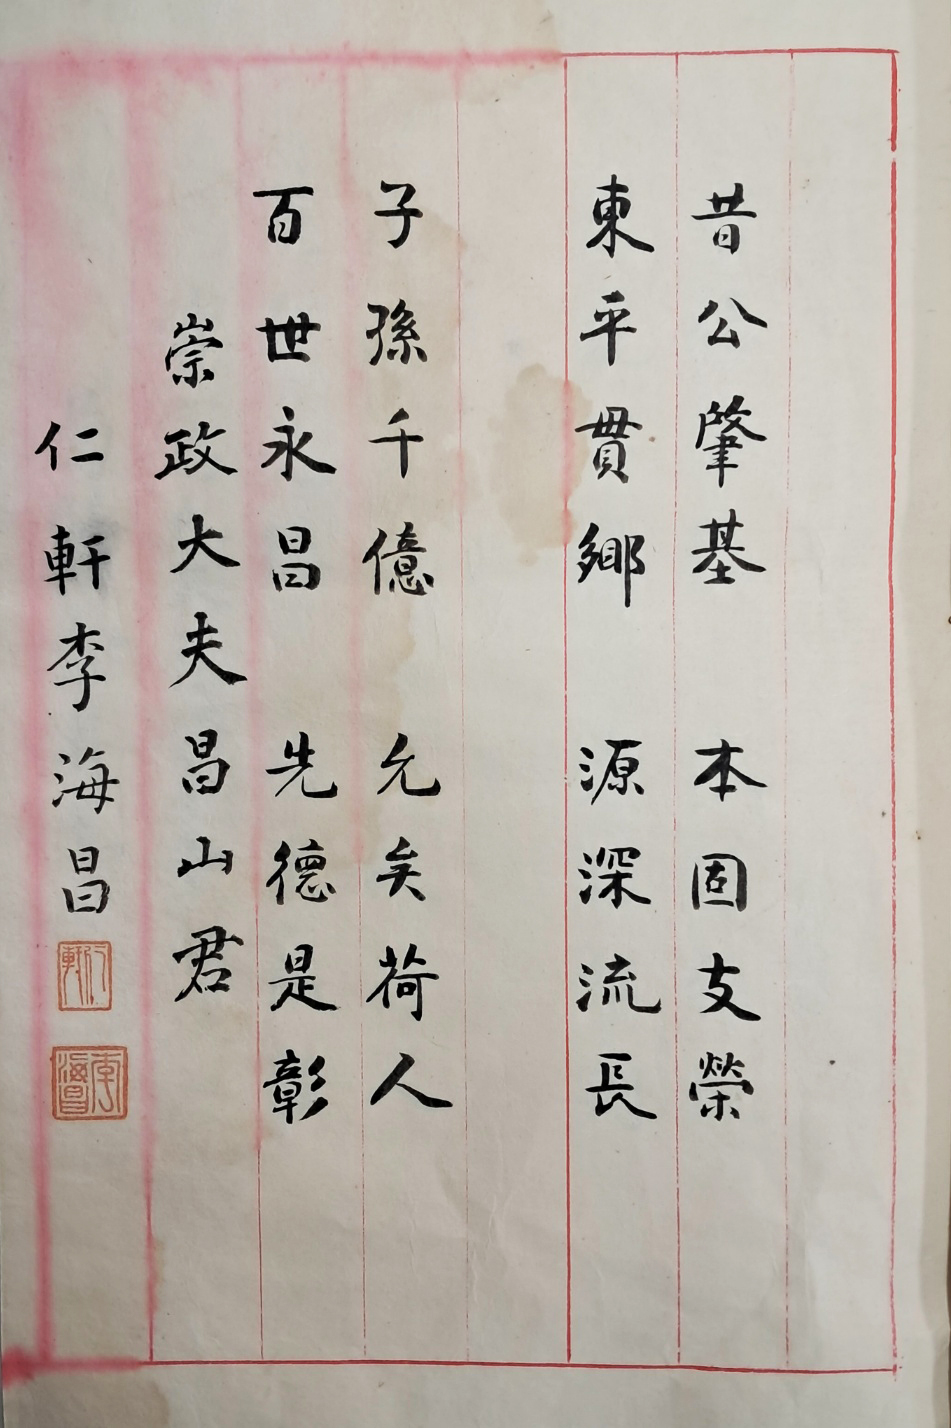 昔公肇基　本固支榮
東平貫鄉　源深流長
子孫千億　允矣荷人
百世永昌　先德是彰
崇政大夫昌山君
仁軒李海昌
仁軒
李海昌